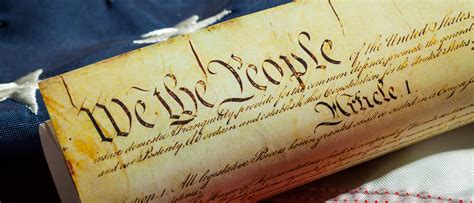 We the People of the United States
insure domestic Tranquility, provide for the common defence, promote the general
and our Posterity, do ordain and establish this Constitution for the United States
Article 1.
Section 1. All legislative Powers herein granted shall be vested in a Congress